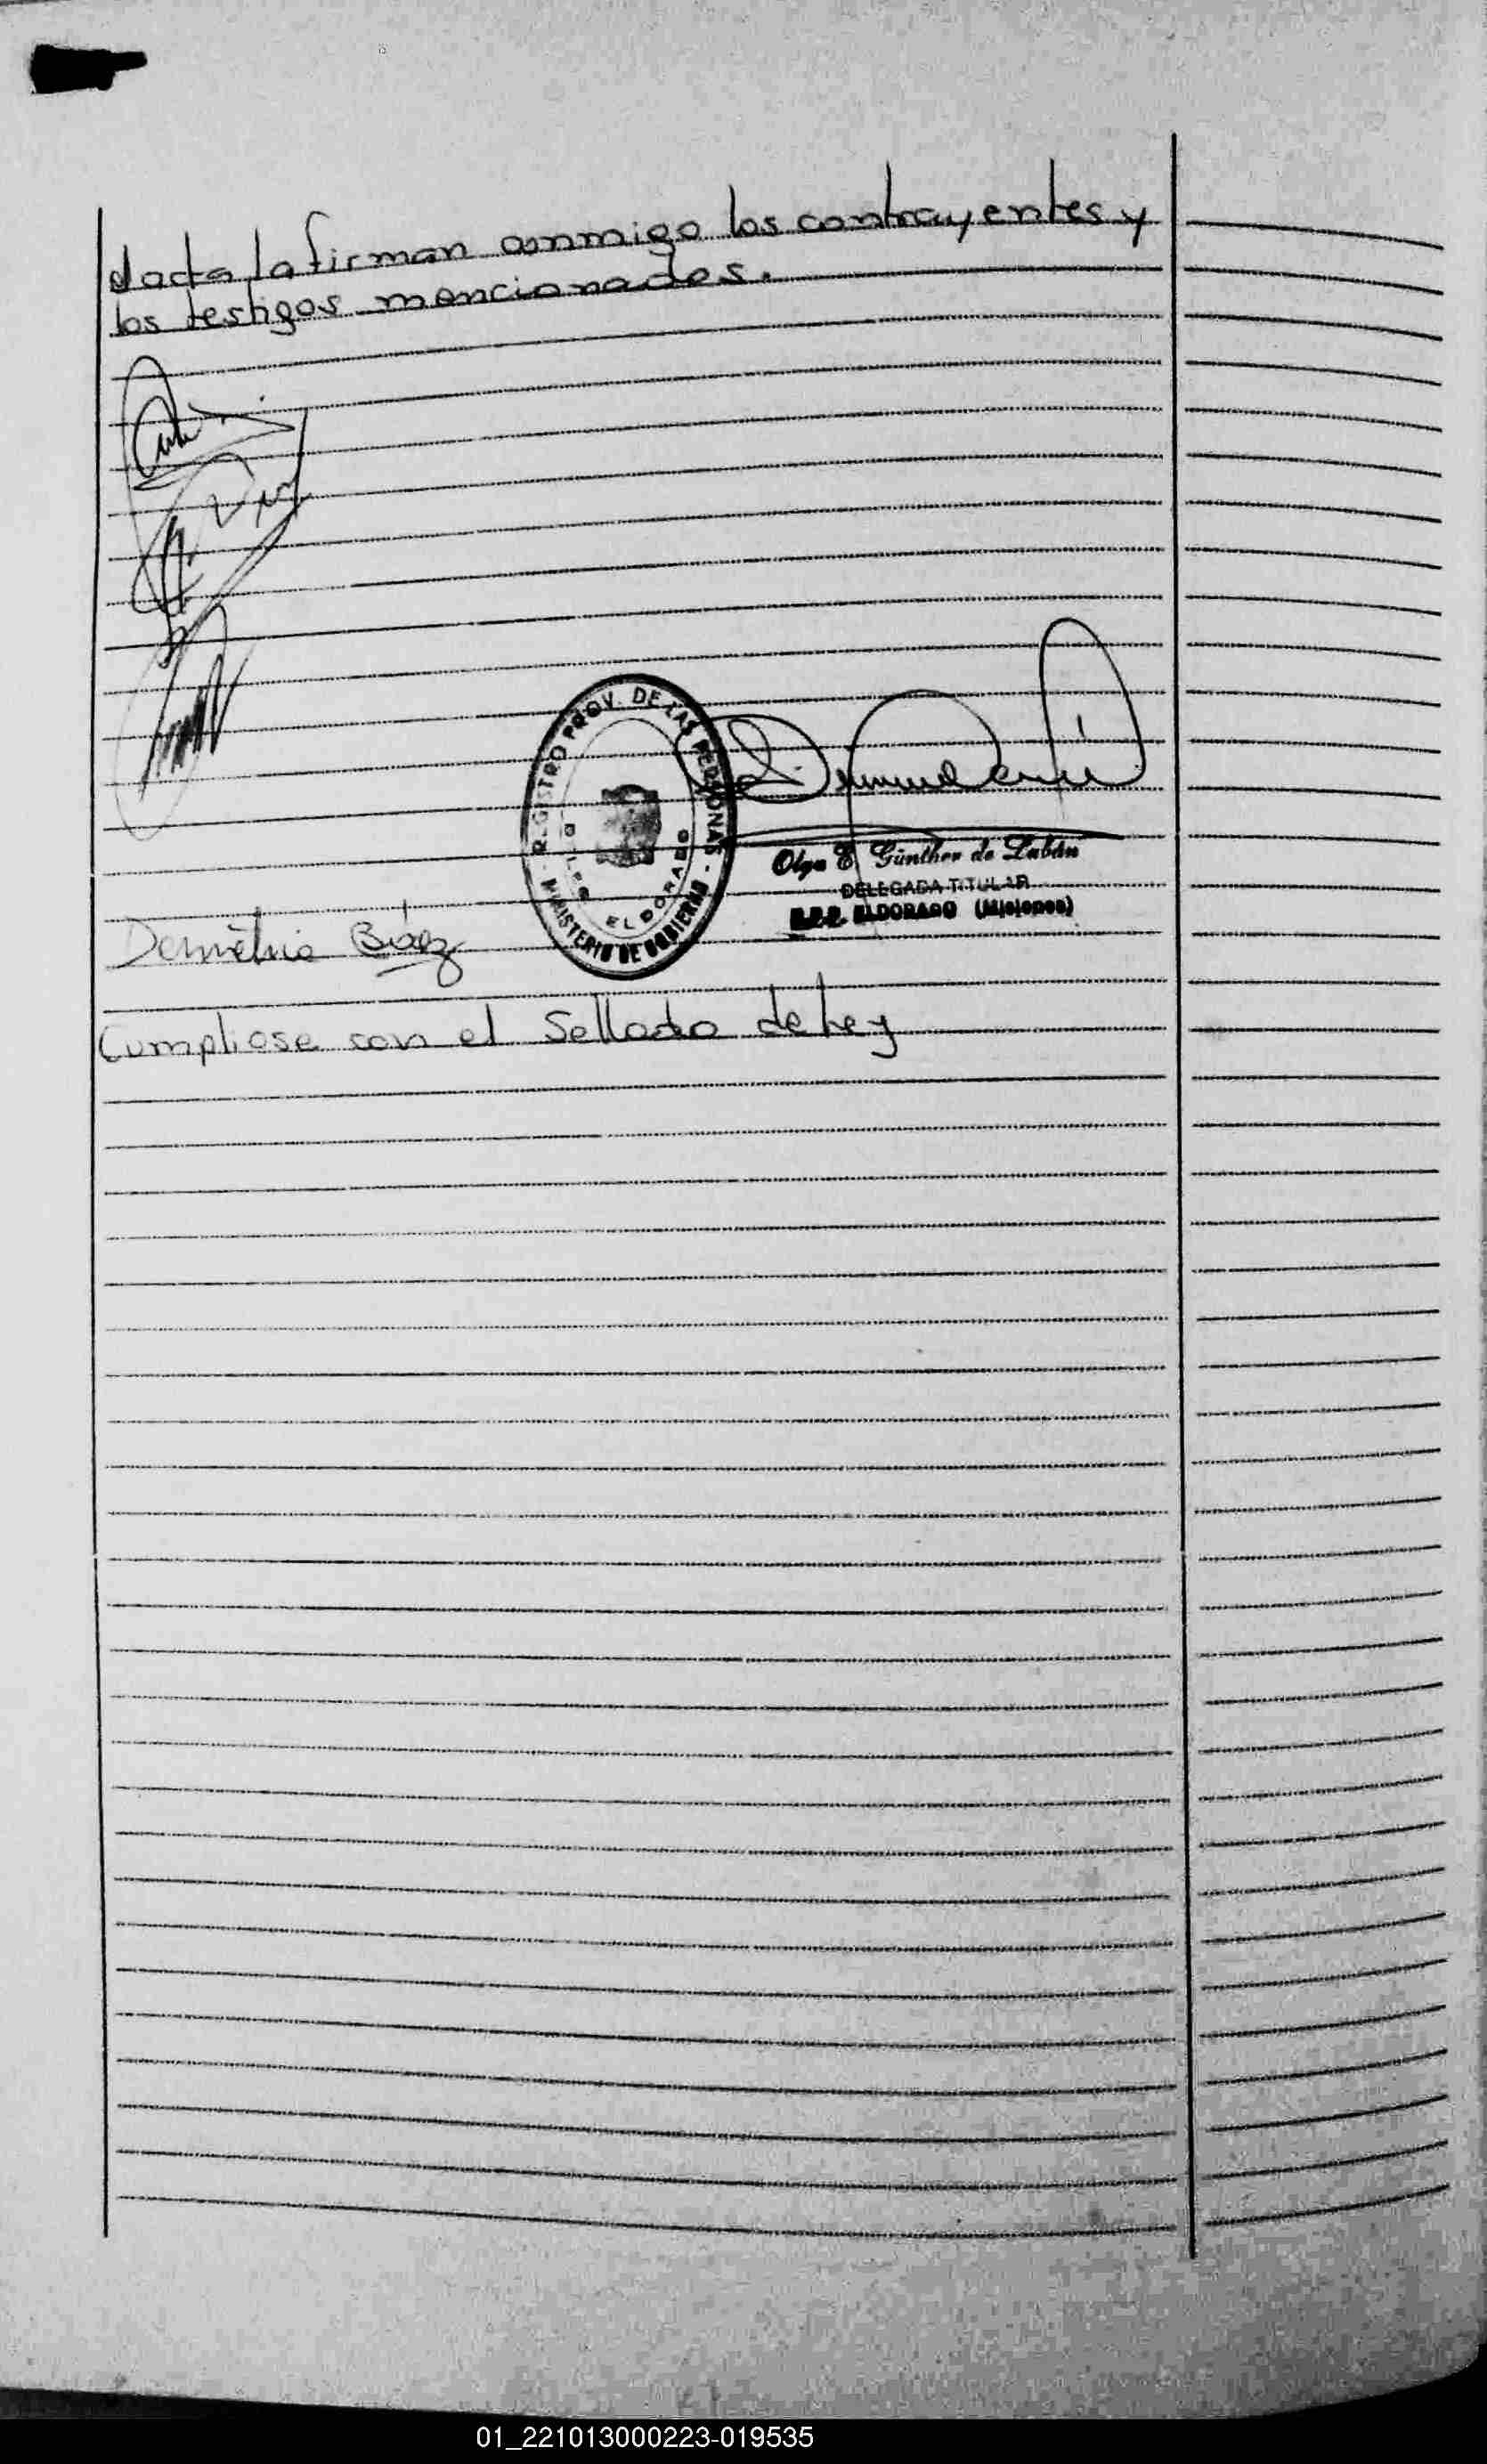 el acta la firman conmigo los contrayentes y
los testigos mencionados.
REGISTRO PROV. DE LAS PERSONAS - MINISTERIO DE GOBIERNO -
ELDORADO
Olga E. Günther de Labán
DELEGADA TITULAR
R.P.P. ELDORADO (Misiones)
Demetrio Báez
Cumpliose con el Sellado de Ley
01_221013000223-019535